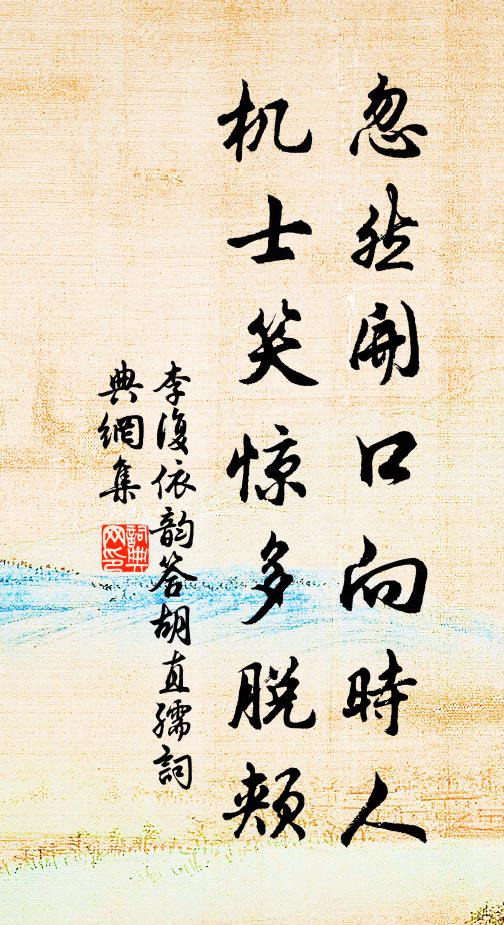 忽然開口向時人
机士笑惊多脱頰
李復依韵答胡直孺詞
典網集
詞典
网印